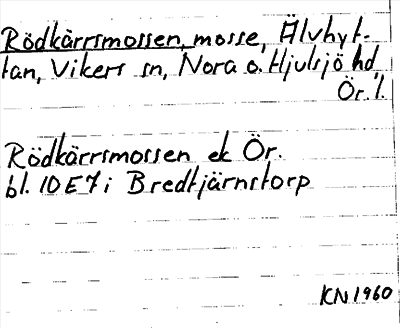 Rödkärrsmossen, mosse, Älvhyt-
tan, Vikers sn, Nora o. Hjulsjö hd,
Ör. l.
Rödkärrsmossen ek Ör.
bl. 10E7i Bredtjärnstorp
KN1960